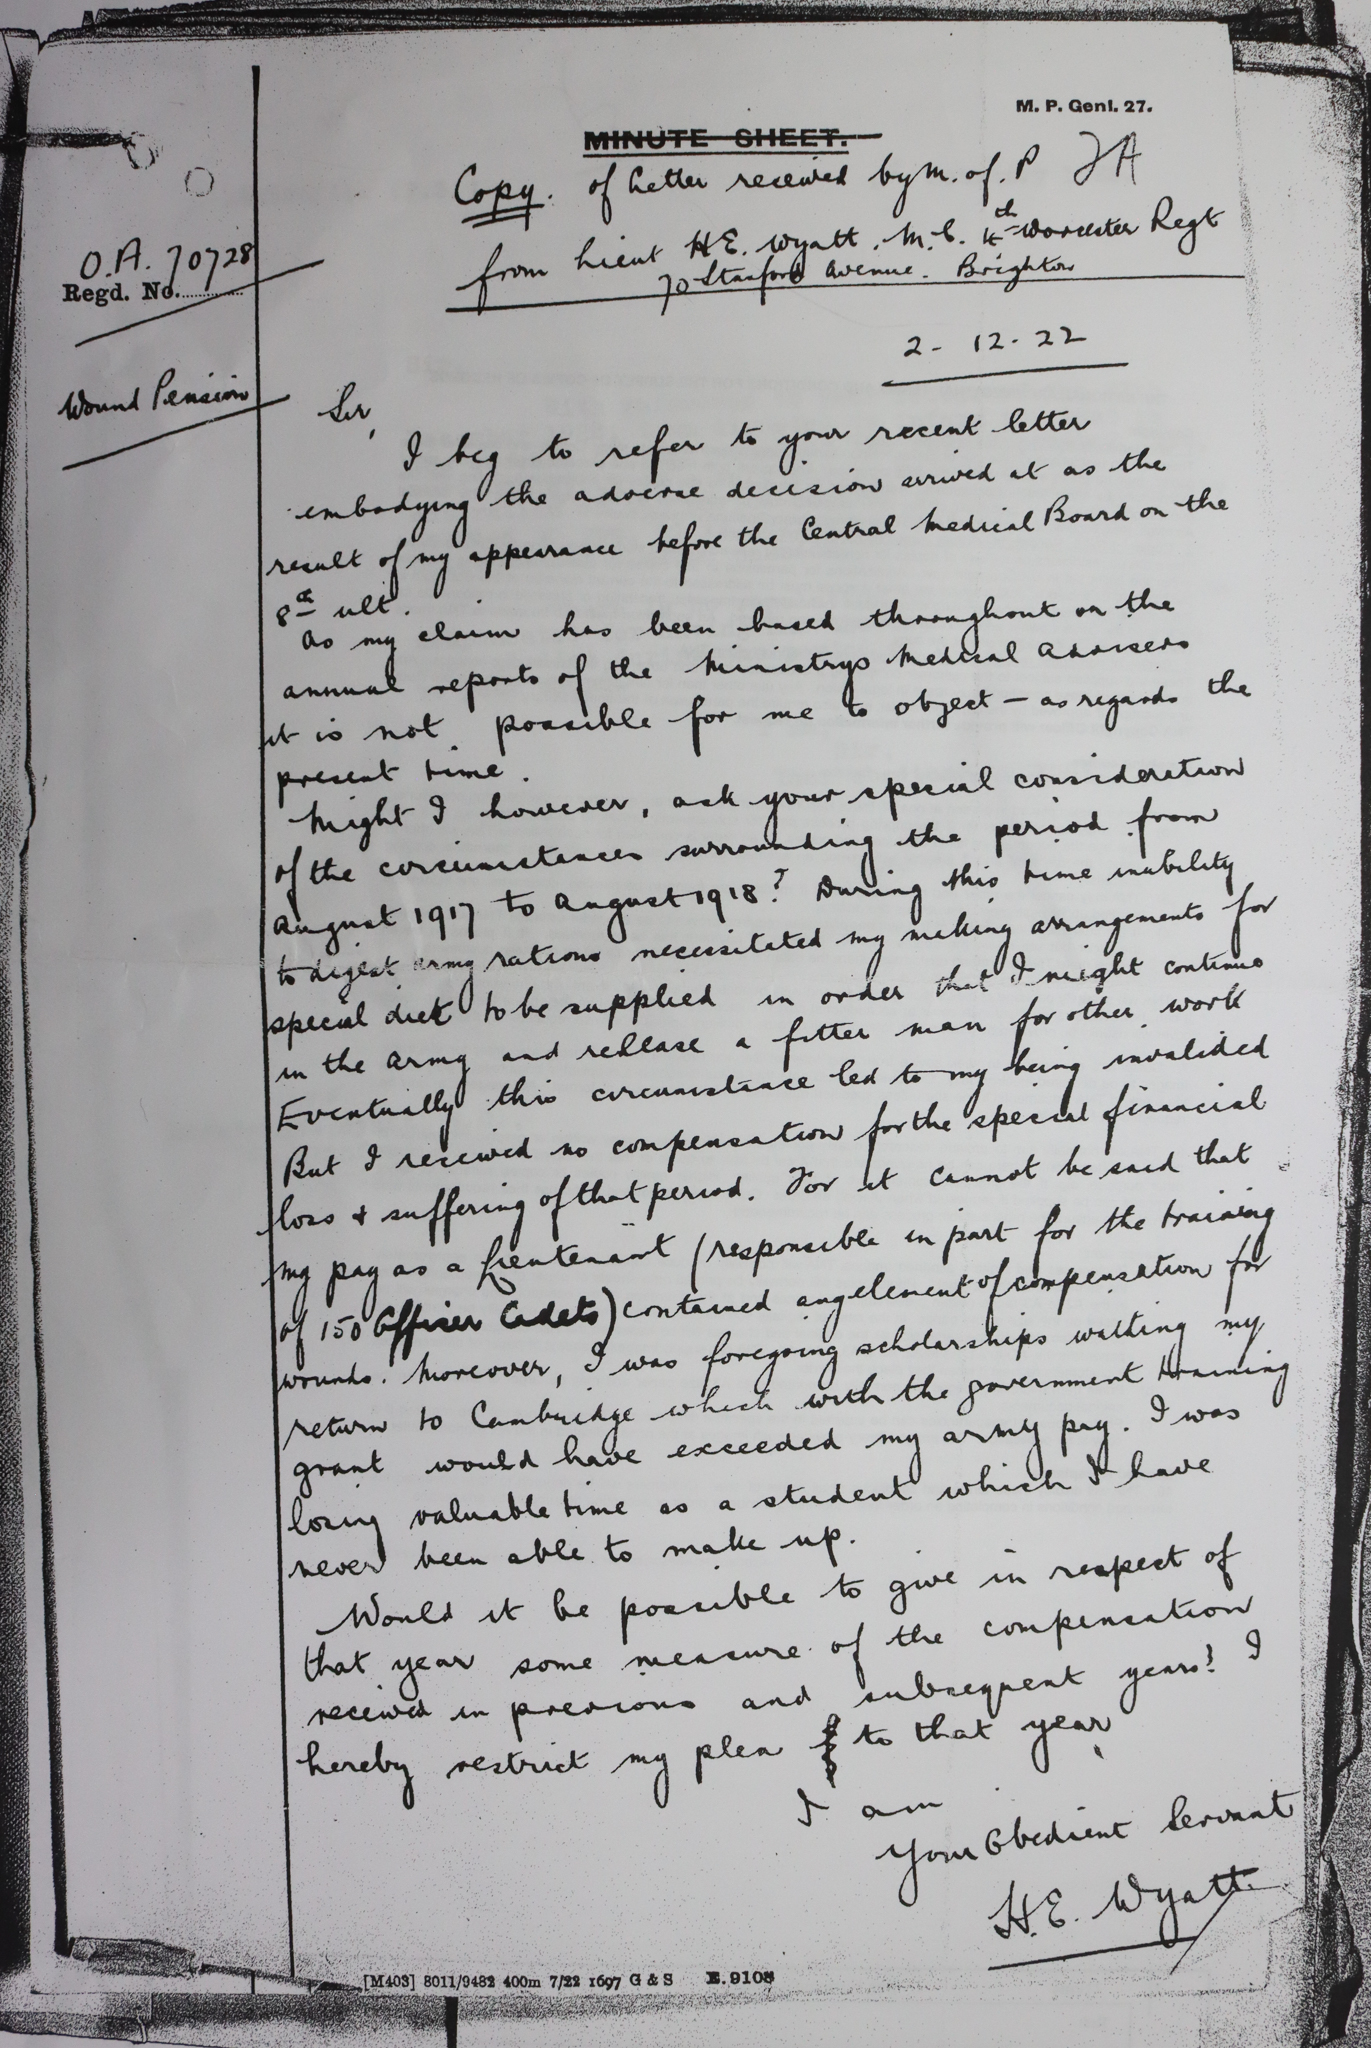 M. P. Genl. 27.
MINUTE SHEET.
Copy. of Letter received by M. of. P
from Lieut H E. Wyatt. M.C. 4th Worcester Regt
70 Stanford Avenue. Brighton
O.A. 70728
Regd. No.
2 - 12 - 22
Wound Pension
Sir,
I beg to refer to your recent letter
embodying the adverse decision arrived at as the
result of my appearance before the Central Medical Board on the
8th ult.
As my claim has been based throughout on the
annual reports of the Ministrys Medical Advisers
it is not possible for me to object - as regards the
present time.
Might I however, ask your special consideration
of the circumstances surrounding the period from
August 1917 to August 1918? During this time inability
to digest army rations necessitated my making arrangements for
special diet to be supplied in order that I might continue
in the army and release a fitter man for other work
Eventually this circumstance led to my being invalided
But I received no compensation for the special financial
loss & suffering of that period. For it cannot be said that
my pay as a Lieutenant (responsible in part for the training
of 150 Officer Cadets) contained any element of compensation for
wounds. Moreover, I was foregoing scholarships waiting my
return to Cambridge which with the government training
grant would have exceeded my army pay. I was
losing valuable time as a student which I have
never been able to make up.
Would it be possible to give in respect of
that year some measure of the compensation
received in previous and subsequent years? I
hereby restrict my plea to that year
I am
Your Obedient Servant
H.E. Wyatt.
[M403] 8011/9482 400m 7/22 1697 G & S E. 9108